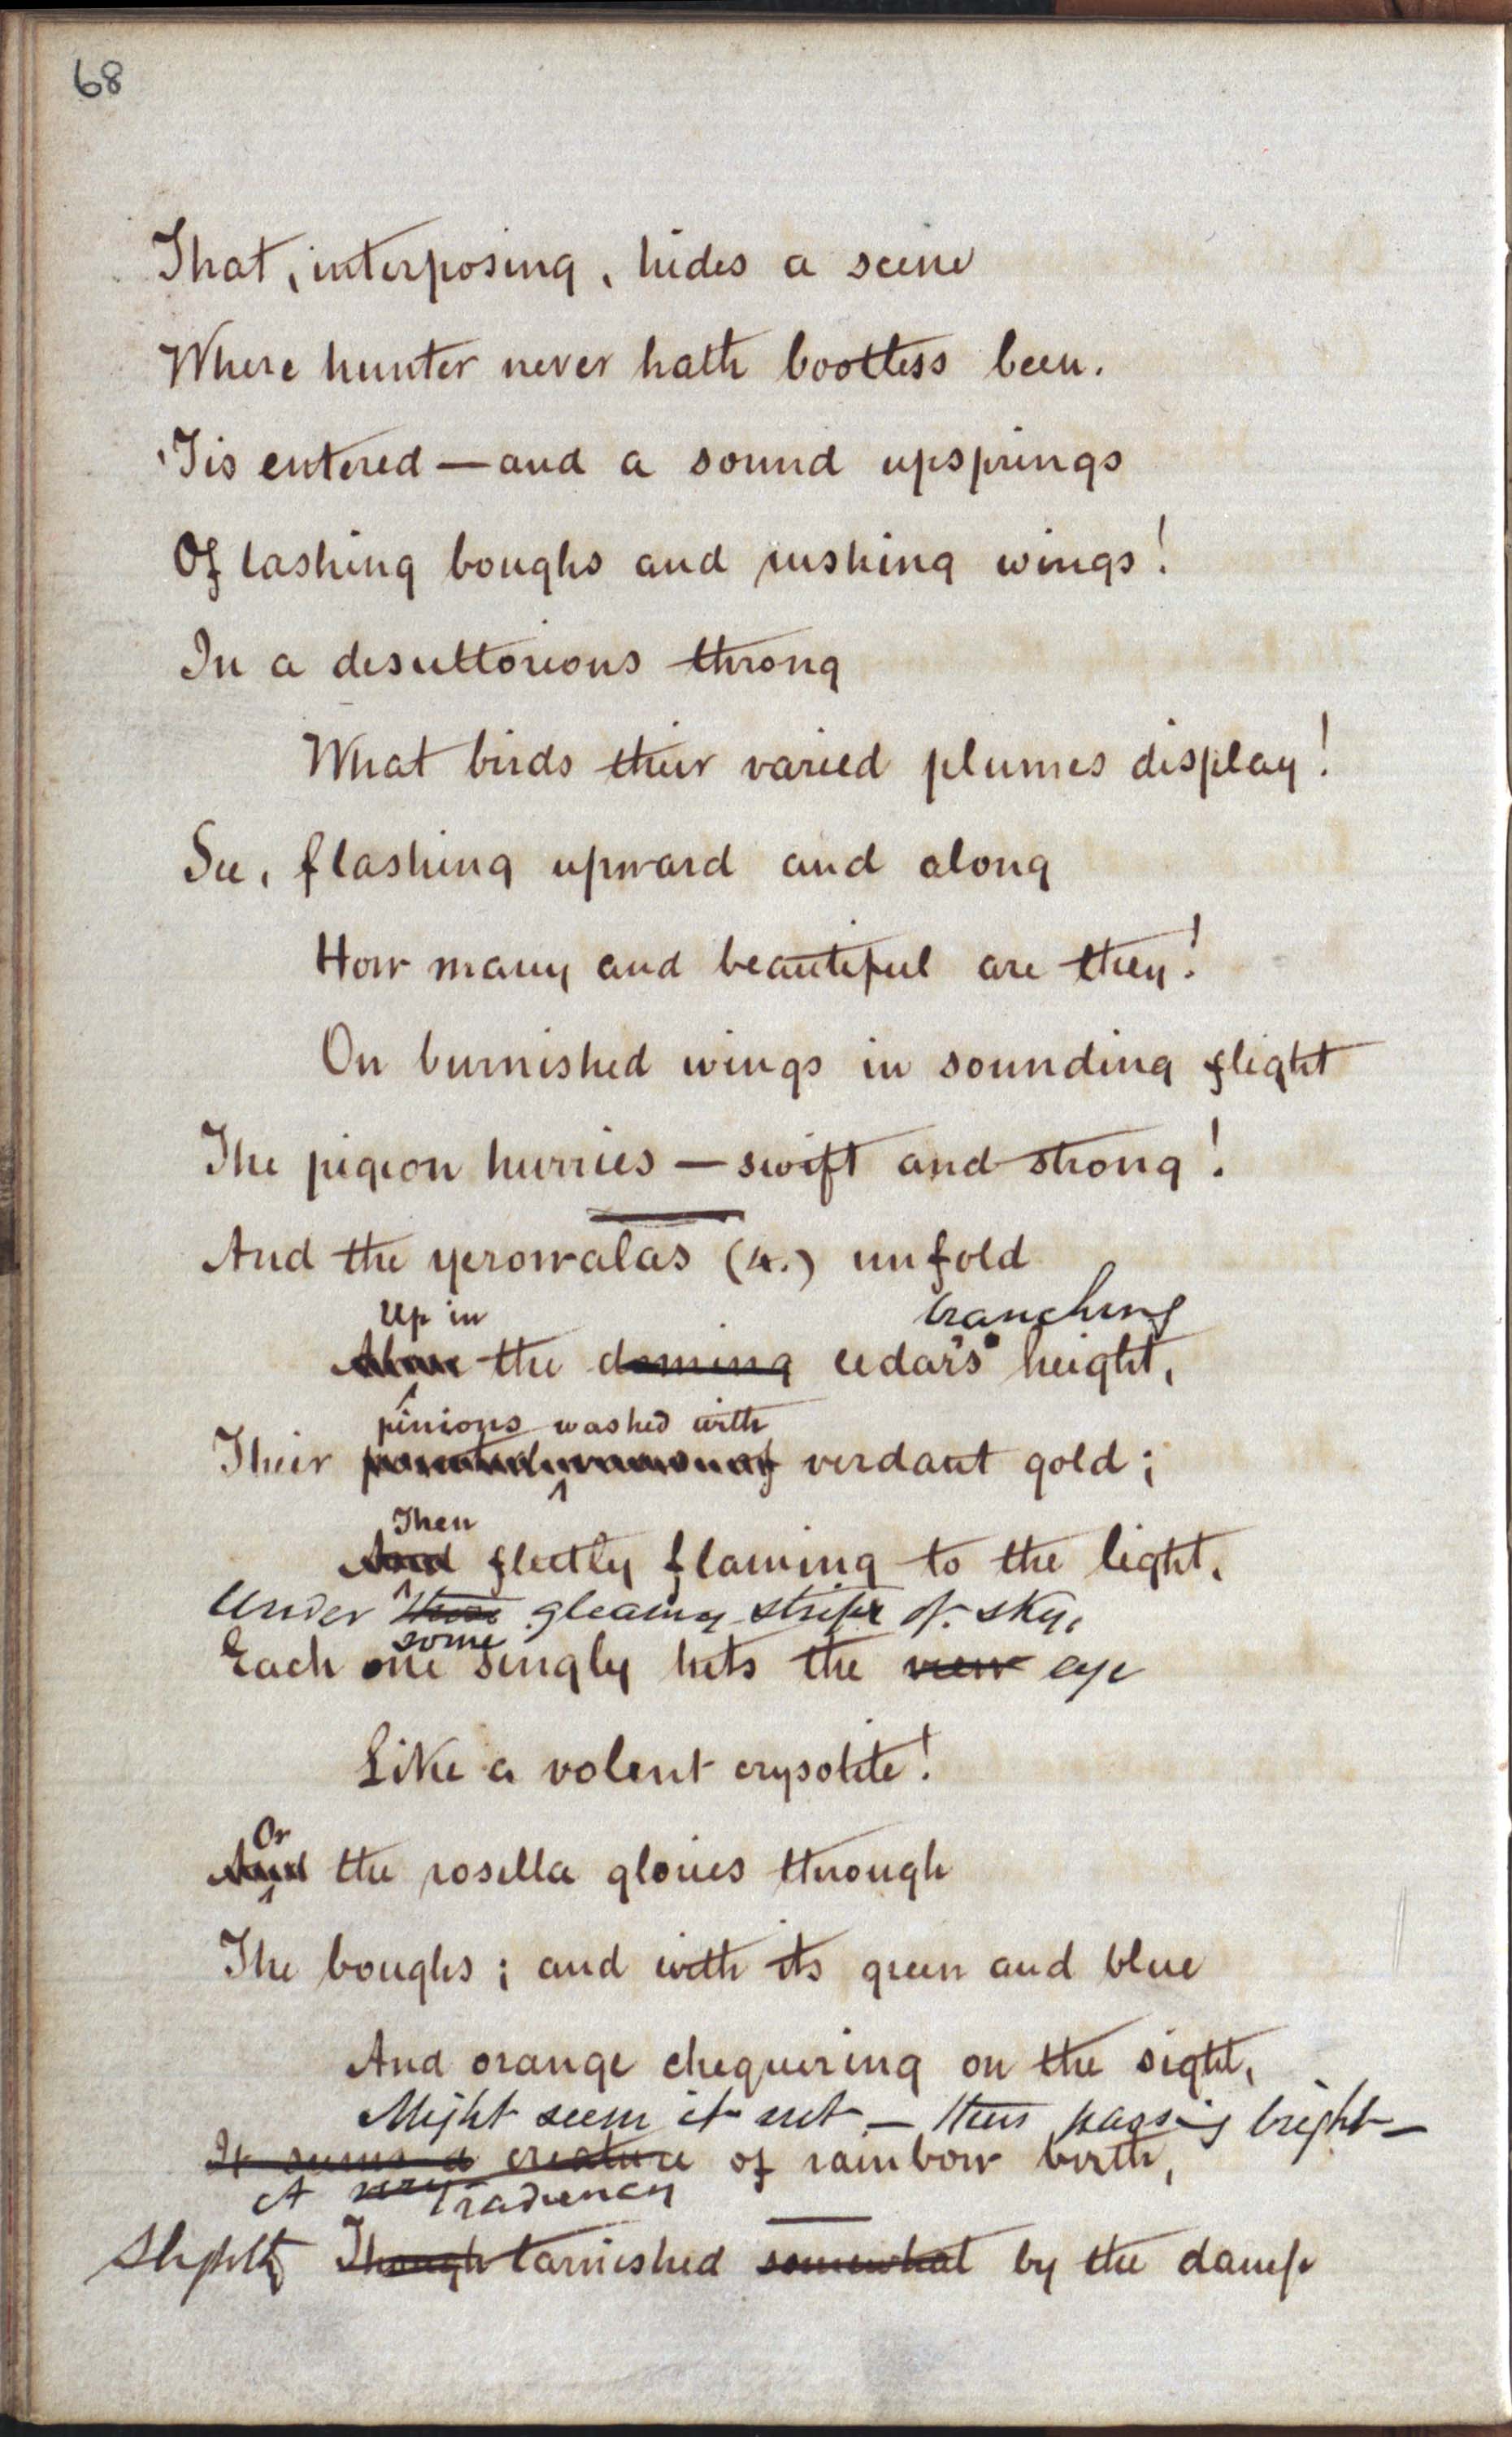 68
That, interposing, hides a scene
Where hunter never hath bootless been.
'Tis entered — and a sound upsprings
Of lashing boughs and rushing wings!
In a desultorious throng
What birds their varied plumes display!
See, flashing upward and along
How many and beautiful are they!
On burnished wings in sounding flight
The pigeon hurries — swift and strong!
And the yerowalas (4.) unfold
Up in branching
the cedar's height,
pinions washed with
Their verdant gold;
Then
And fleetly flaming to the light,
Under these gleaming stripe of sky,
some
Each one singly hits the view eye
Like a volent crysolite!
Or
And the rosella glories through
The boughs; and with its green and blue
And orange chequering on the sight,
Might seem it not — thus passing bright —
It seems a creature of rainbow birth,
A very radiency
Slightly Though tarnished somewhat by the damp